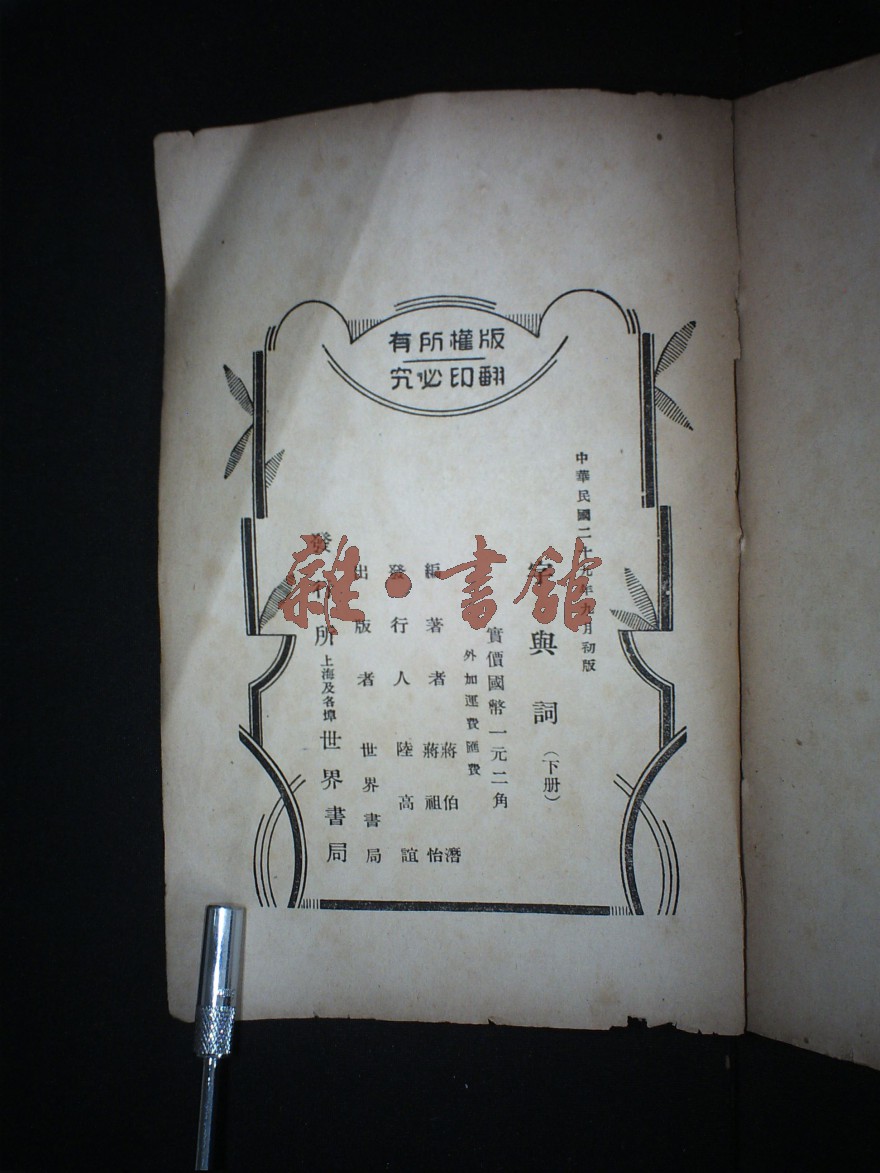 版權所有
翻印必究
中華民國二十九年九月初版
字與詞（下册）
實價國幣一元二角
外加運費匯費
編著者 蔣伯潛
蔣祖怡
發行人 陸高誼
出版者 世界書局
發行所 上海及各埠 世界書局
雜·書館